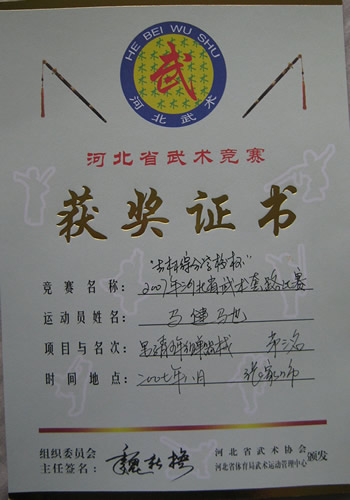 HE BEI WU SHU
武
河北武术
河北省武术竞赛
获奖证书
竞赛名称: 2007年河北省武术套路比赛
运动员姓名: 马健
项目与名次: 第三名
时间地点: 二00七年八月 张家口市
组织委员会
主任签名:
河北省武术协会
河北省体育局武术运动管理中心 颁发